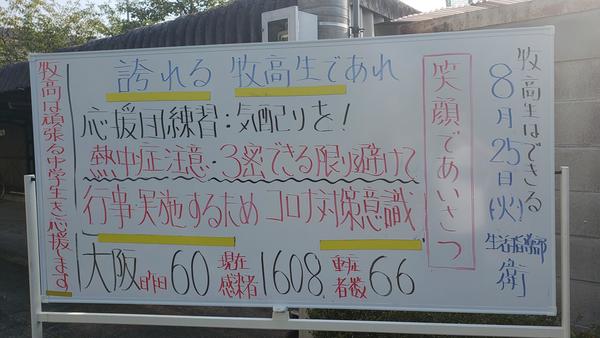 牧高生はできる
8月25日(火)
生活指導部
衛
笑顔であいさつ
誇れる 牧高生であれ
応援団練習:気配りを!
熱中症注意・3密できる限り避けて
行事・実施するため コロナ対策意識
大阪昨日60 現在感染者1608 重症者数66
牧高は頑張る中学生を応援します